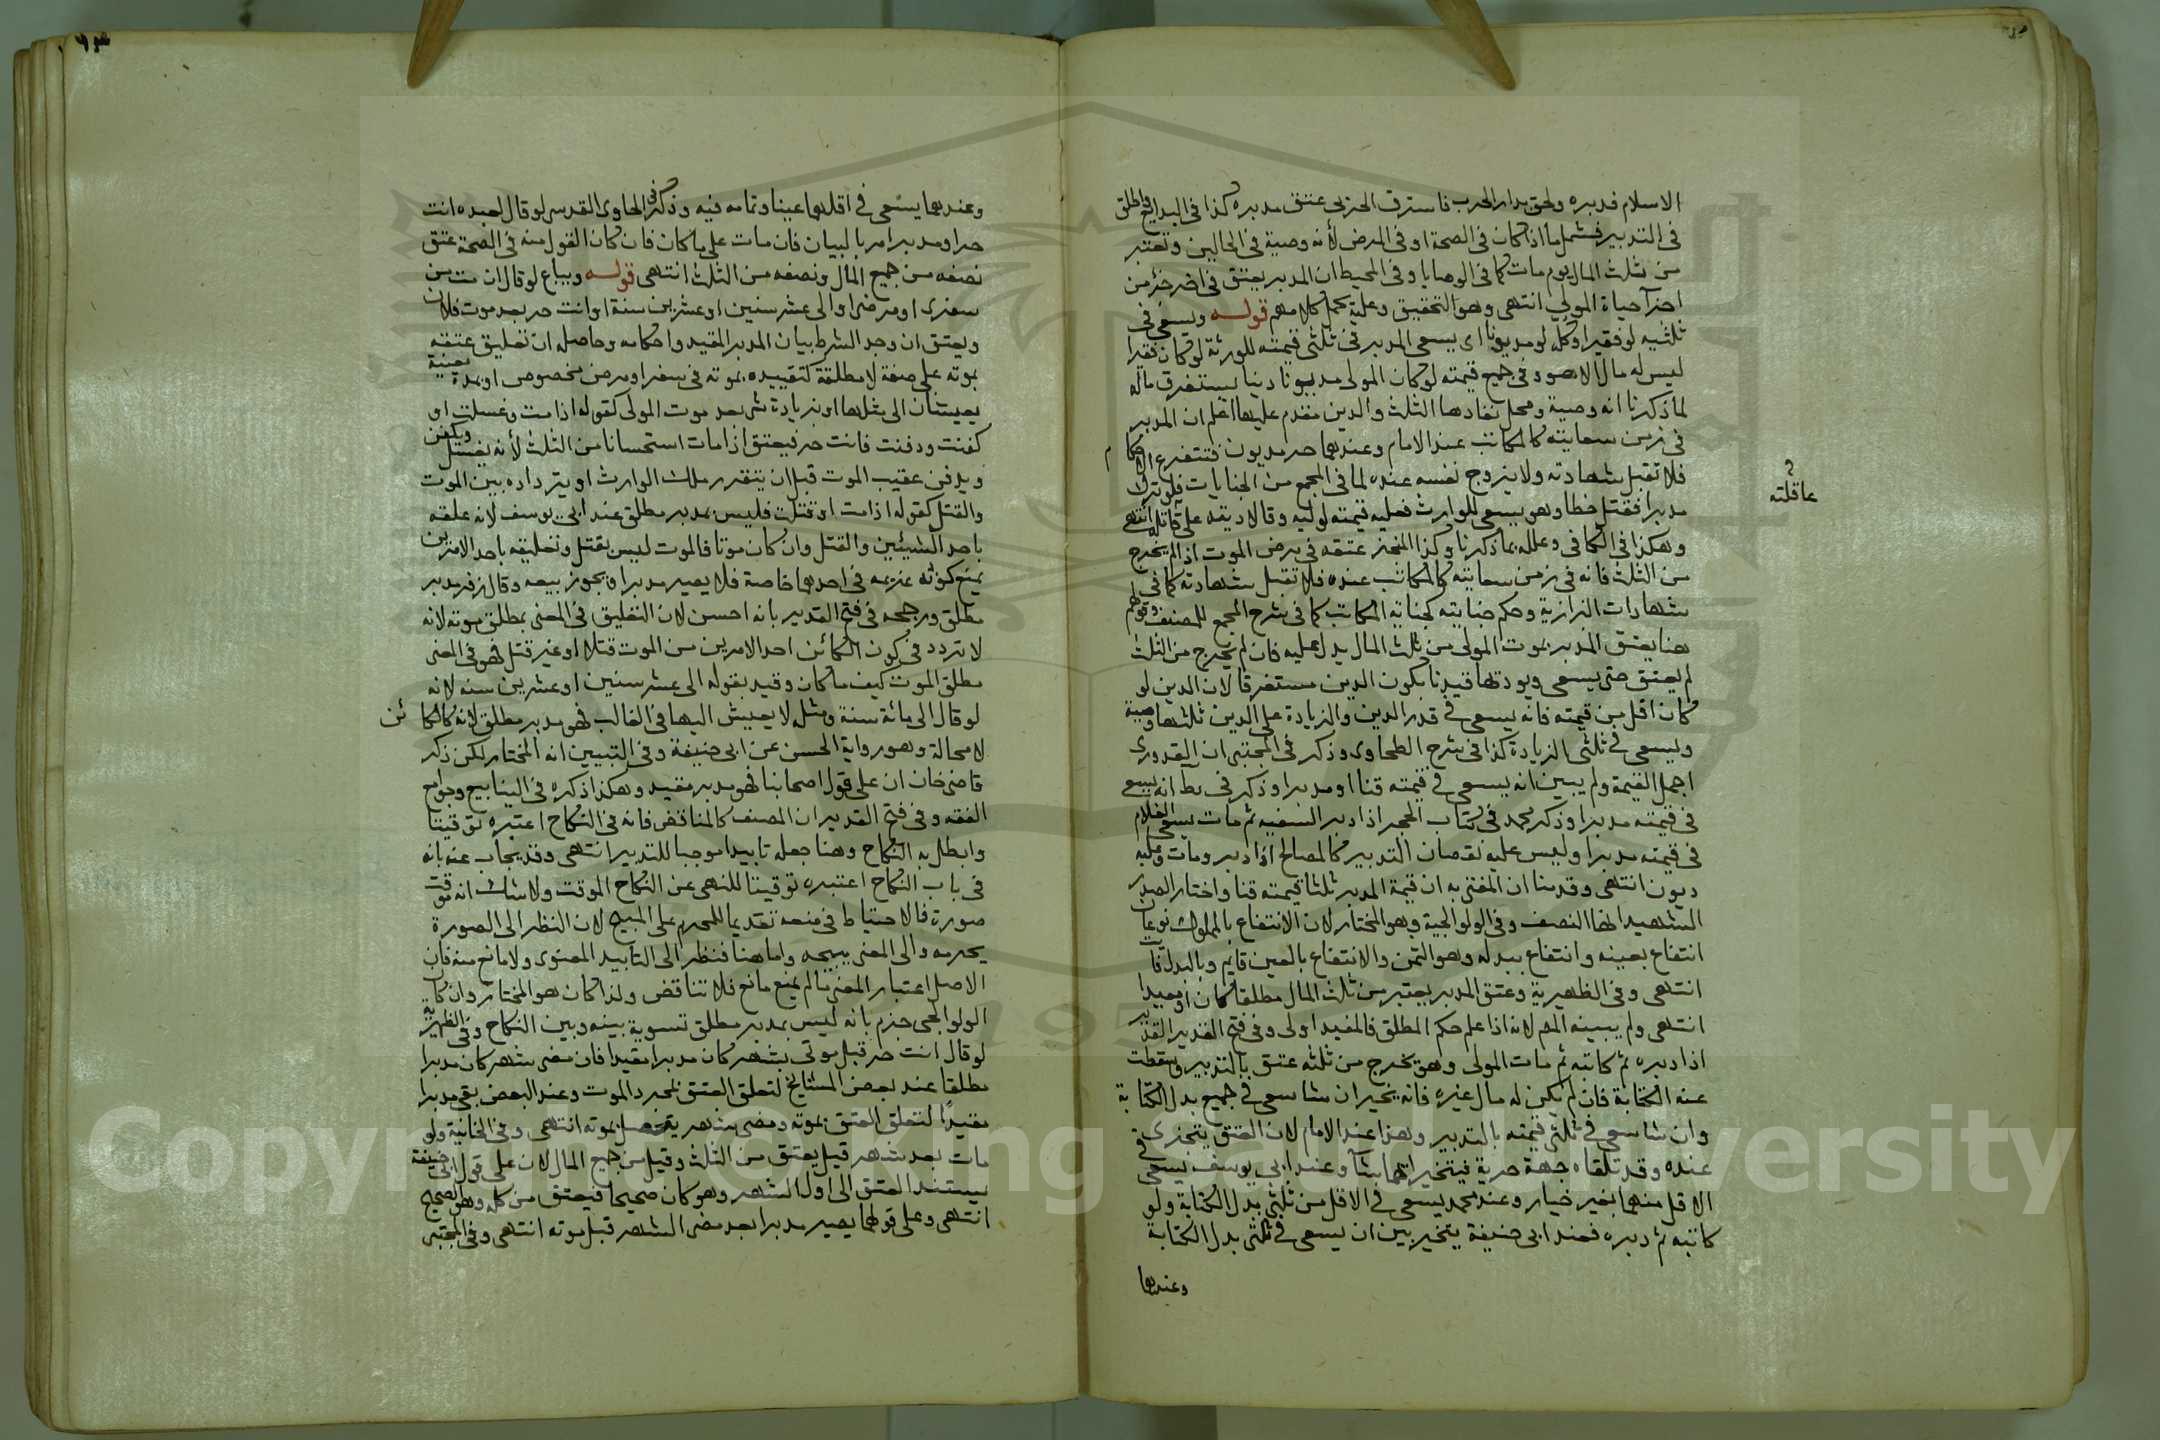 الاسلام فدبره ولحق بدار الحرب فاسترق الحربي عتق مدبره كذا في البدائع واطلق
في التدبير فشمل ما اذا كان في الصحة او في المرض لأنه وصية في الحالين وتعتبر
من ثلث المال يوم مات كما في الوصايا وفي المحيط ان المدبر يعتق في اخر جزء من
اجزآ حياة المولى انتهى وهو التحقيق وعليه يحمل كلامهم قوله ويسعى في
ثلثيه لو فقيرا وكله لو مديونا اى يسعى المدبر في ثلثى قيمته للورثة لو كان فقيرا
ليس له مال الا هو وفي جميع قيمته لو كان المولى مديونا دينا يستغرق ماله
لما ذكرنا انه وصية ومحل نفاذها الثلث والدين مقدم عليها اعلم ان المدبر
في زمن سعايته كالمكاتب عند الامام وعندهما حر مديون فتتفرع الاحكام
فلا تقبل شهادته ولا يزوج نفسه عنده لما في المجمع من الجنايات فلو ترك
مدبرا فقتل خطا وهو يسعى للوارث فعليه قيمته لوليه وقالا ديته على عاقلته انتهى
عاقلته
وهكذا في الكافى وعلله بما ذكرنا وكذا المنجز عتقه في مرض الموت اذا لم يخرج
من الثلث فانه في زمن سعايته كالمكاتب عنده فلا تقبل شهادته كما في
شهادات البزازية وحكم جنايته كجناية المكاتب كما في شرح المجمع للمصنف وقولهم
هنا يعتق المدبر بموت المولى من ثلث المال يدل عليه فان لم يخرج من الثلث
لم يعتق حتى يسعى ويودتها قيدنا بكون الدين مستغرقا لان الدين لو
كان اقل من قيمته فانه يسعى في قدر الدين والزيادة على الدين ثلثها وصية
ويسعى في ثلثى الزيادة كذا في شرح الطحاوى وذكر في المجتبى ان القدورى
اجمل القيمة ولم يبين انه يسعى في قيمته قنا او مدبرا وذكر في ط انه يسعى
في قيمته مدبرا وذكر محمد في كتاب الحجر اذا دبر السفيه ثم مات يسعى الغلام
في قيمته مدبرا وليس عليه نقصان التدبير كالمصالح اذا دبر ومات وعليه
ديون انتهى وقدمنا ان المفتى به ان قيمة المدبر ثلثا قيمته قنا واختار الصدر
الشهيد انها النصف وفي الولوالجية وهو المختار لان الانتفاع بالمملوك نوعان
انتفاع بعينه وانتفاع ببدله وهو الثمن والانتفاع بالعين قايم وبالبدل فات
انتهى وفي الظهيرية وعتق المدبر يعتبر من ثلث المال مطلقا كان او مقيدا
انتهى ولم يبينه المص لانه اذا علم حكم المطلق فالمقيد اولى وفي فتح القدير القدير
اذا دبره ثم كاتبه ثم مات المولى وهو يخرج من ثلثه عتق بالتدبير وسقطت
عنه الكتابة فان لم يكن له مال غيره فانه يخير ان شا سعى في جميع بدل الكتابة
وان شا سعى في ثلثى قيمته بالتدبير وهذا عند الامام لان العتق يتجزى
عنده وقد تلقاه جهة حرية فيتخير ايهما شآ وعند ابي يوسف يسعى في
الاقل منهما بغير خيار وعند محمد يسعى في الاقل من ثلثى بدل الكتابة ولو
كاتبه ثم دبره فعند ابى حنيفة يتخير بين ان يسعى في ثلثى بدل الكتابة
وعندهما
وعندهما يسعى في اقلهما عينا وتمامه فيه وذكر في الحاوى القدسى لو قال لعبده انت
حر او مدبر امر بالبيان فان مات على ما كان فان كان القول منه في الصحة عتق
نصفه من جميع المال ونصفه من الثلث انتهى قوله ويباع لو قال ان مت من
سفرى او مرضى او الى عشر سنين او عشرين سنة او انت حر بعد موت فلان
ويعتق ان وجد الشرط بيان المدبر المقيد واحكامه وحاصله ان تعليق عتقه
بموته على صفة لا مطلقة كتقييده بموته في سفر او مرض مخصوص او بمدة معينة
يعيشان الى مثلها او بزيادة شى بعد موت المولى كقوله اذا مت وغسلت او
كفنت ودفنت فانت حر فيعتق اذا مات استحسانا من الثلث لأنه يغسل ويكفن
ويدفن عقيب الموت قبل ان يتقرر ملك الوارث او بترداده بين الموت
والقتل كقوله اذا مت او قتلت فليس بمدبر مطلق عند ابي يوسف لانه علقه
باحد الشيئين والقتل وان كان موتا فالموت ليس بقتل وتعليقه باحد الامرين
يمنع كونه عزيمه في احدهما خاصة فلا يصير مدبرا ويجوز بيعه وقال زفر مدبر
مطلق ورجحه في فتح القدير بانه احسن لان التعليق في المعنى بمطلق موته لانه
لا تردد في كون الكائن احد الامرين من الموت قتلا او غير قتل فهو في المعنى
مطلق الموت كيف ما كان وقيد بقوله الى عشر سنين او عشرين سنه لانه
لو قال الى مائة سنة ومثله لا يعيش اليها في الغالب فهو مدبر مطلق لانه كالكائن
لا محالة وهو رواية الحسن عن ابى حنيفة وفي التبيين انه المختار لكن ذكر
قاضى خان ان على قول اصحابنا فهو مدبر مقيد وهكذا ذكره في الينابيع وجوامع
الفقه وفي فتح القدير ان المصنف كالمناقض فانه في النكاح اعتبره توقيتا
وابطل به النكاح وهنا جعله تابيدا موجبا للتدبير انتهى وقد يجاب عنه بانه
في باب النكاح اعتبره توقيتا للنهى عن النكاح الموقت ولا شك انه موقت
صورة فالاحتياط في منعه تقديما للمحرم على المبيح لان النظر الى الصورة
يحرمه والى المعنى يبيحه واما هنا فنظر الى التابيد المعنوى ولا مانع منه فان
الاصل اعتبار المعنى ما لم يمنع مانع فلا تناقض ولذا كان هو المختار وان كان
الولوالجى جزم بانه ليس بمدبر مطلق تسوية بينه وبين النكاح وفي الظهيرية
لو قال انت حر قبل موتى بشهر كان مدبرا مقيدا فان مضى شهر كان مدبرا
مطلقا عند بعض المشايخ لتعلق العتق بمجرد الموت وعند البعض بقى مدبرا
مقيدًا لتعلق العتق بموته ومضى شهر يتصل بموته انتهى وفي الخانية ولو
مات بعد شهر قيل يعتق من الثلث وقيل من جميع المال لان على قول ابى حنيفة
يستند العتق الى اول الشهر وهو كان صحيحا فيعتق من كله وهو الصحيح
انتهى وعلى قولهما يصير مدبرا بعد مضى الشهر قبل موته انتهى وفي المجتبى
Copyright © King Saud University
1957